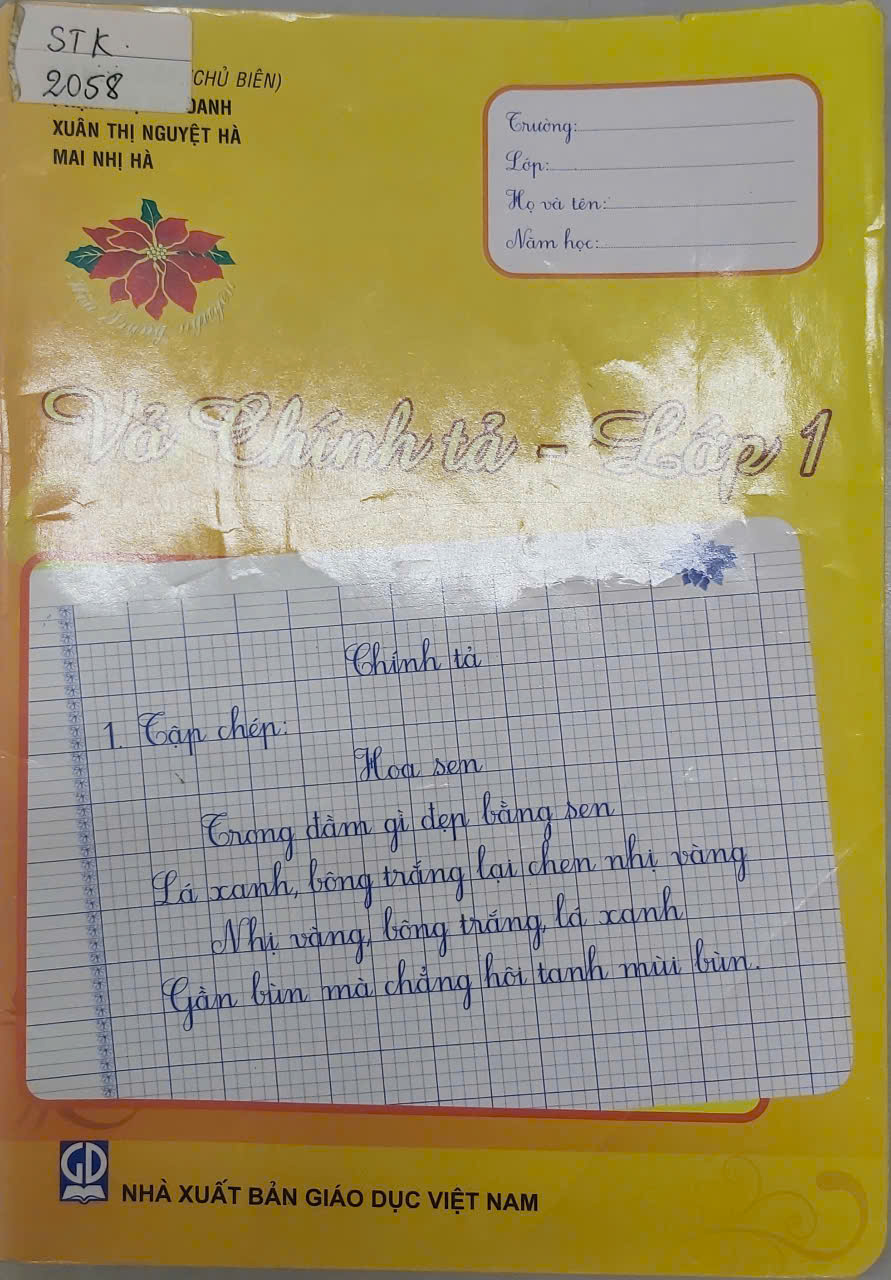 STK.
2058
(CHỦ BIÊN)
OANH
XUÂN THỊ NGUYỆT HÀ
MAI NHỊ HÀ
Trường:
Lớp:
Họ và tên:
Năm học:
Vở Chính tả - Lớp 1
Chính tả
1. Tập chép:
Hoa sen
Trong đầm gì đẹp bằng sen
Lá xanh, bông trắng lại chen nhị vàng
Nhị vàng, bông trắng, lá xanh
Gần bùn mà chẳng hôi tanh mùi bùn.
GD
NHÀ XUẤT BẢN GIÁO DỤC VIỆT NAM